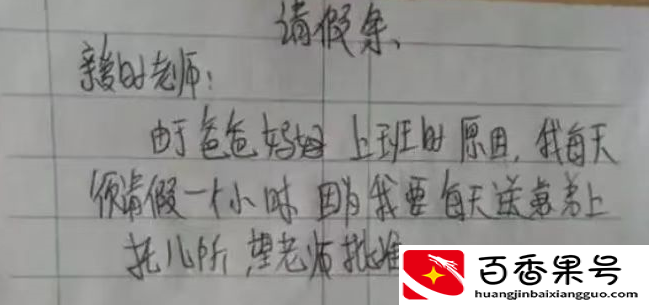 请假条
亲爱的老师：
由于爸爸妈妈上班的原因，我每天
须请假一个小时因为我要每天送弟弟上
托儿所，望老师批准
百香果号
huangjinbaixiangguo.com